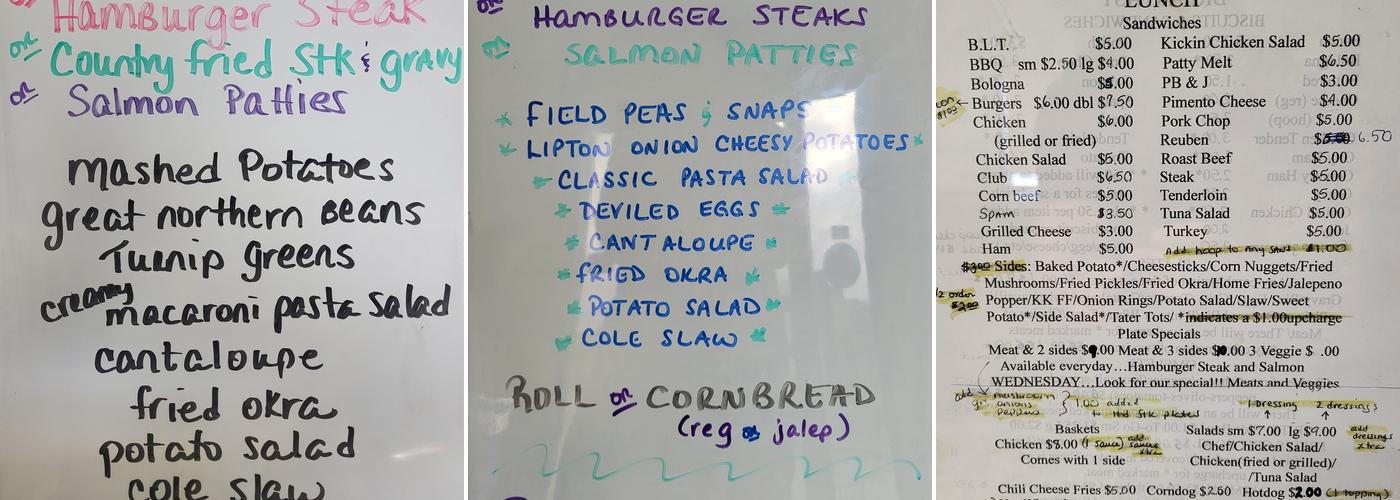 Hamburger Steak
or Country fried Stk & gravy
or Salmon Patties
mashed Potatoes
great northern Beans
Turnip greens
creamy macaroni pasta salad
cantaloupe
fried okra
potato salad
cole slaw
or HAMBURGER STEAKS
or SALMON PATTIES
FIELD PEAS & SNAPS
LIPTON ONION CHEESY POTATOES
CLASSIC PASTA SALAD
DEVILED EGGS
CANTALOUPE
FRIED OKRA
POTATO SALAD
COLE SLAW
ROLL or CORNBREAD
(reg or jalep)
LUNCH
Sandwiches
B.L.T. $5.00 Kickin Chicken Salad $5.00
BBQ sm $2.50 lg $4.00 Patty Melt $6.50
Bologna $5.00 PB & J $3.00
Burgers $6.00 dbl $7.50 Pimento Cheese $4.00
Chicken $6.00 Pork Chop $5.00
(grilled or fried) Reuben 6.50
Chicken Salad $5.00 Roast Beef $5.00
Club $6.50 Steak $5.00
Corn beef $5.00 Tenderloin $5.00
Spam $3.50 Tuna Salad $5.00
Grilled Cheese $3.00 Turkey $5.00
Ham $5.00 Add hoop to any $1.00
$3.00 Sides: Baked Potato*/Cheesesticks/Corn Nuggets/Fried
Mushrooms/Fried Pickles/Fried Okra/Home Fries/Jalepeno
1/2 order $2.00 Popper/KK FF/Onion Rings/Potato Salad/Slaw/Sweet
Potato*/Side Salad*/Tater Tots/ *indicates a $1.00upcharge
Plate Specials
Meat & 2 sides $ .00 Meat & 3 sides $ .00 3 Veggie $ .00
Available everyday…Hamburger Steak and Salmon
WEDNESDAY…Look for our special!! Meats and Veggies
add mushroom gr. onions peppers } 1.00 added to HB Stk plates
1 Dressing 2 dressings
Baskets Salads sm $7.00 lg $9.00 add dressings xtra
Chicken $8.00 (1 sauce) add sauces xtra Chef/Chicken Salad/
Comes with 1 side Chicken(fried or grilled)/
/Tuna Salad
Chili Cheese Fries $5.00 Corndog $2.50 Hotdog $2.00 (1 topping)